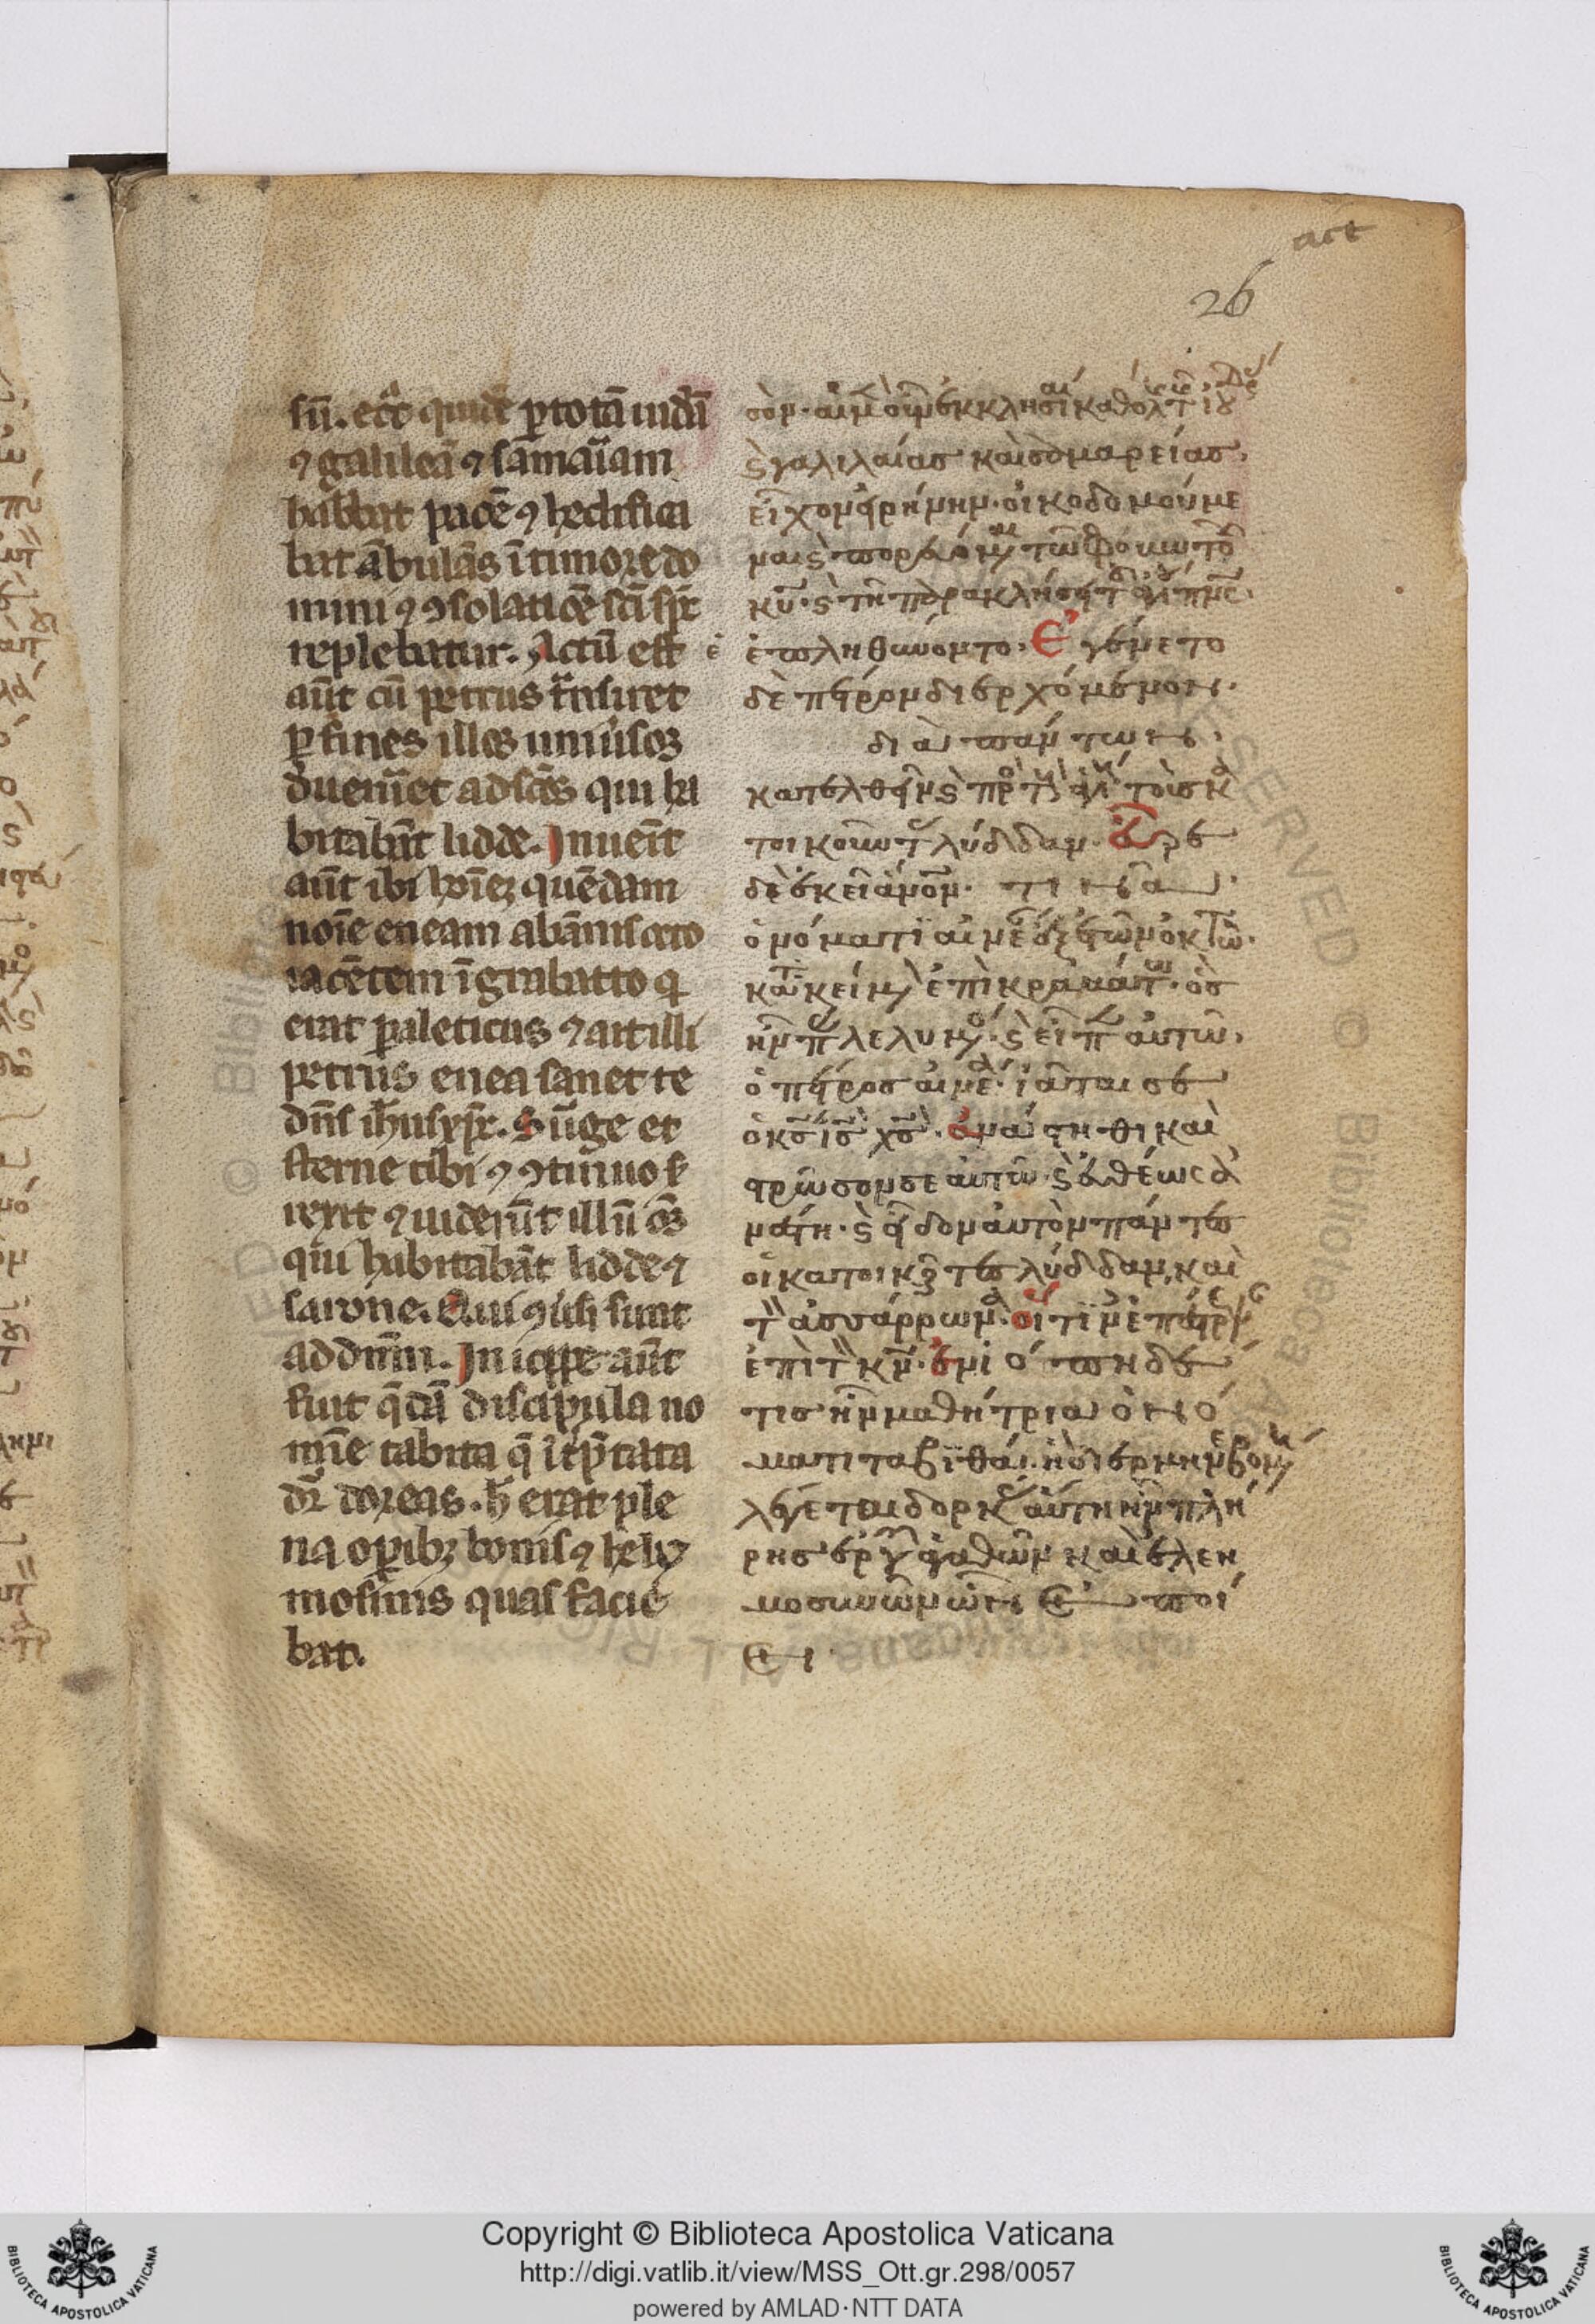 act
26
sū. eccā quidē ꝑ totā iudā
⁊ galileā ⁊ samaīam
habbāt pacē ⁊ hedifica
bāt ābulās ī timore do
mini ⁊ ꝯsolatiōe sc̄i sp̄c
replebatur. Actū est
aūt cū petrus t̄nsiret
ꝑ fines illos uniūsos
dueniēt ad sc̄os qui ha
bitabāt lidde. Inuenit
aūt ibi hoīeꝫ quēdam
noīe eneam ab ānis octo
iacētem ī grabatto q̄
erat ꝑaleticus ⁊ ait illi
petrus enea sanet te
dn̄s ih̄us xp̄c. Surge et
sterne tibi ⁊ ꝯtinuo s
rexit ⁊ uiderūt illū oēs
qui habitabāt lidde ⁊
sarone. Qui ꝯūsi sunt
ad dn̄m. In ioppe aūt
fuit q̄dā discipula no
mīe tabita q̄ īt̄p̄tata
dr̄ dorcas. h̄ erat ple
na oꝑibꝫ bonis ⁊ hely
mosinis quas facie
bat.
σὸν· αἱ μ̀ οὖν ἐκκλησίαι καθολ τ ἰου
ϗ γαλιλαίας καὶ σαμαρείας.
εἶχον εἰρήνην· οἰκοδομούμε
ναι ϗ πορευόμεναι τῶ φόβω το
κῡ· ϗ τῆ παρακλήσει τ ἁγί πν̄ς.
ἐπληθύνοντο· Ἐγένετο
δὲ πέτρον διερχόμενον·
διὰ πάντων·
κατελθεῖν ϗ πρ τ ἁγί τοὺς κα
τοικοῦντ λύδδαν· Εὗρε
δὲ ἐκεῖ ἀν̄ον· τινὰ·
ὀνόματι αἰνέ ἐξ ἐτῶν ὀκτὼ·
κατακείμ ἐπὶ κραβάτ· ὃς
ἦν π λελυμ· ϗ εἶπ αὐτῶ.
ὁ πέτρος αἰνέ· ἰᾶται σε
ὁ κ̄ς ι̅ς χ̅ς. ἀνάστηθι καὶ
στρῶσον σεαυτῶ· ϗ εὐθέως ἀ
νέστη· ϗ εἶδον αὐτὸν πάντες
οἱ κατοικοῦντες λύδδαν, καὶ
τ ἀσσάρρωνα· οἵτιν ἐπέστρεψ
ἐπὶ τ κν̄· ἐν ἰόππη δὲ
τις ἦν μαθήτρια ὀνό
ματι ταβιθά. ἣ διερμηνευομ
λέγεται δορκ αὕτη ἦν πλή
ρης ἔργ ἀγαθῶν καὶ ἐλεη
μοσυνῶν ὧν ἐποί
ει·
Copyright © Biblioteca Apostolica Vaticana
http://digi.vatlib.it/view/MSS_Ott.gr.298/0057
powered by AMLAD·NTT DATA
BIBLIOTECA APOSTOLICA VATICANA
BIBLIOTECA APOSTOLICA VATICANA